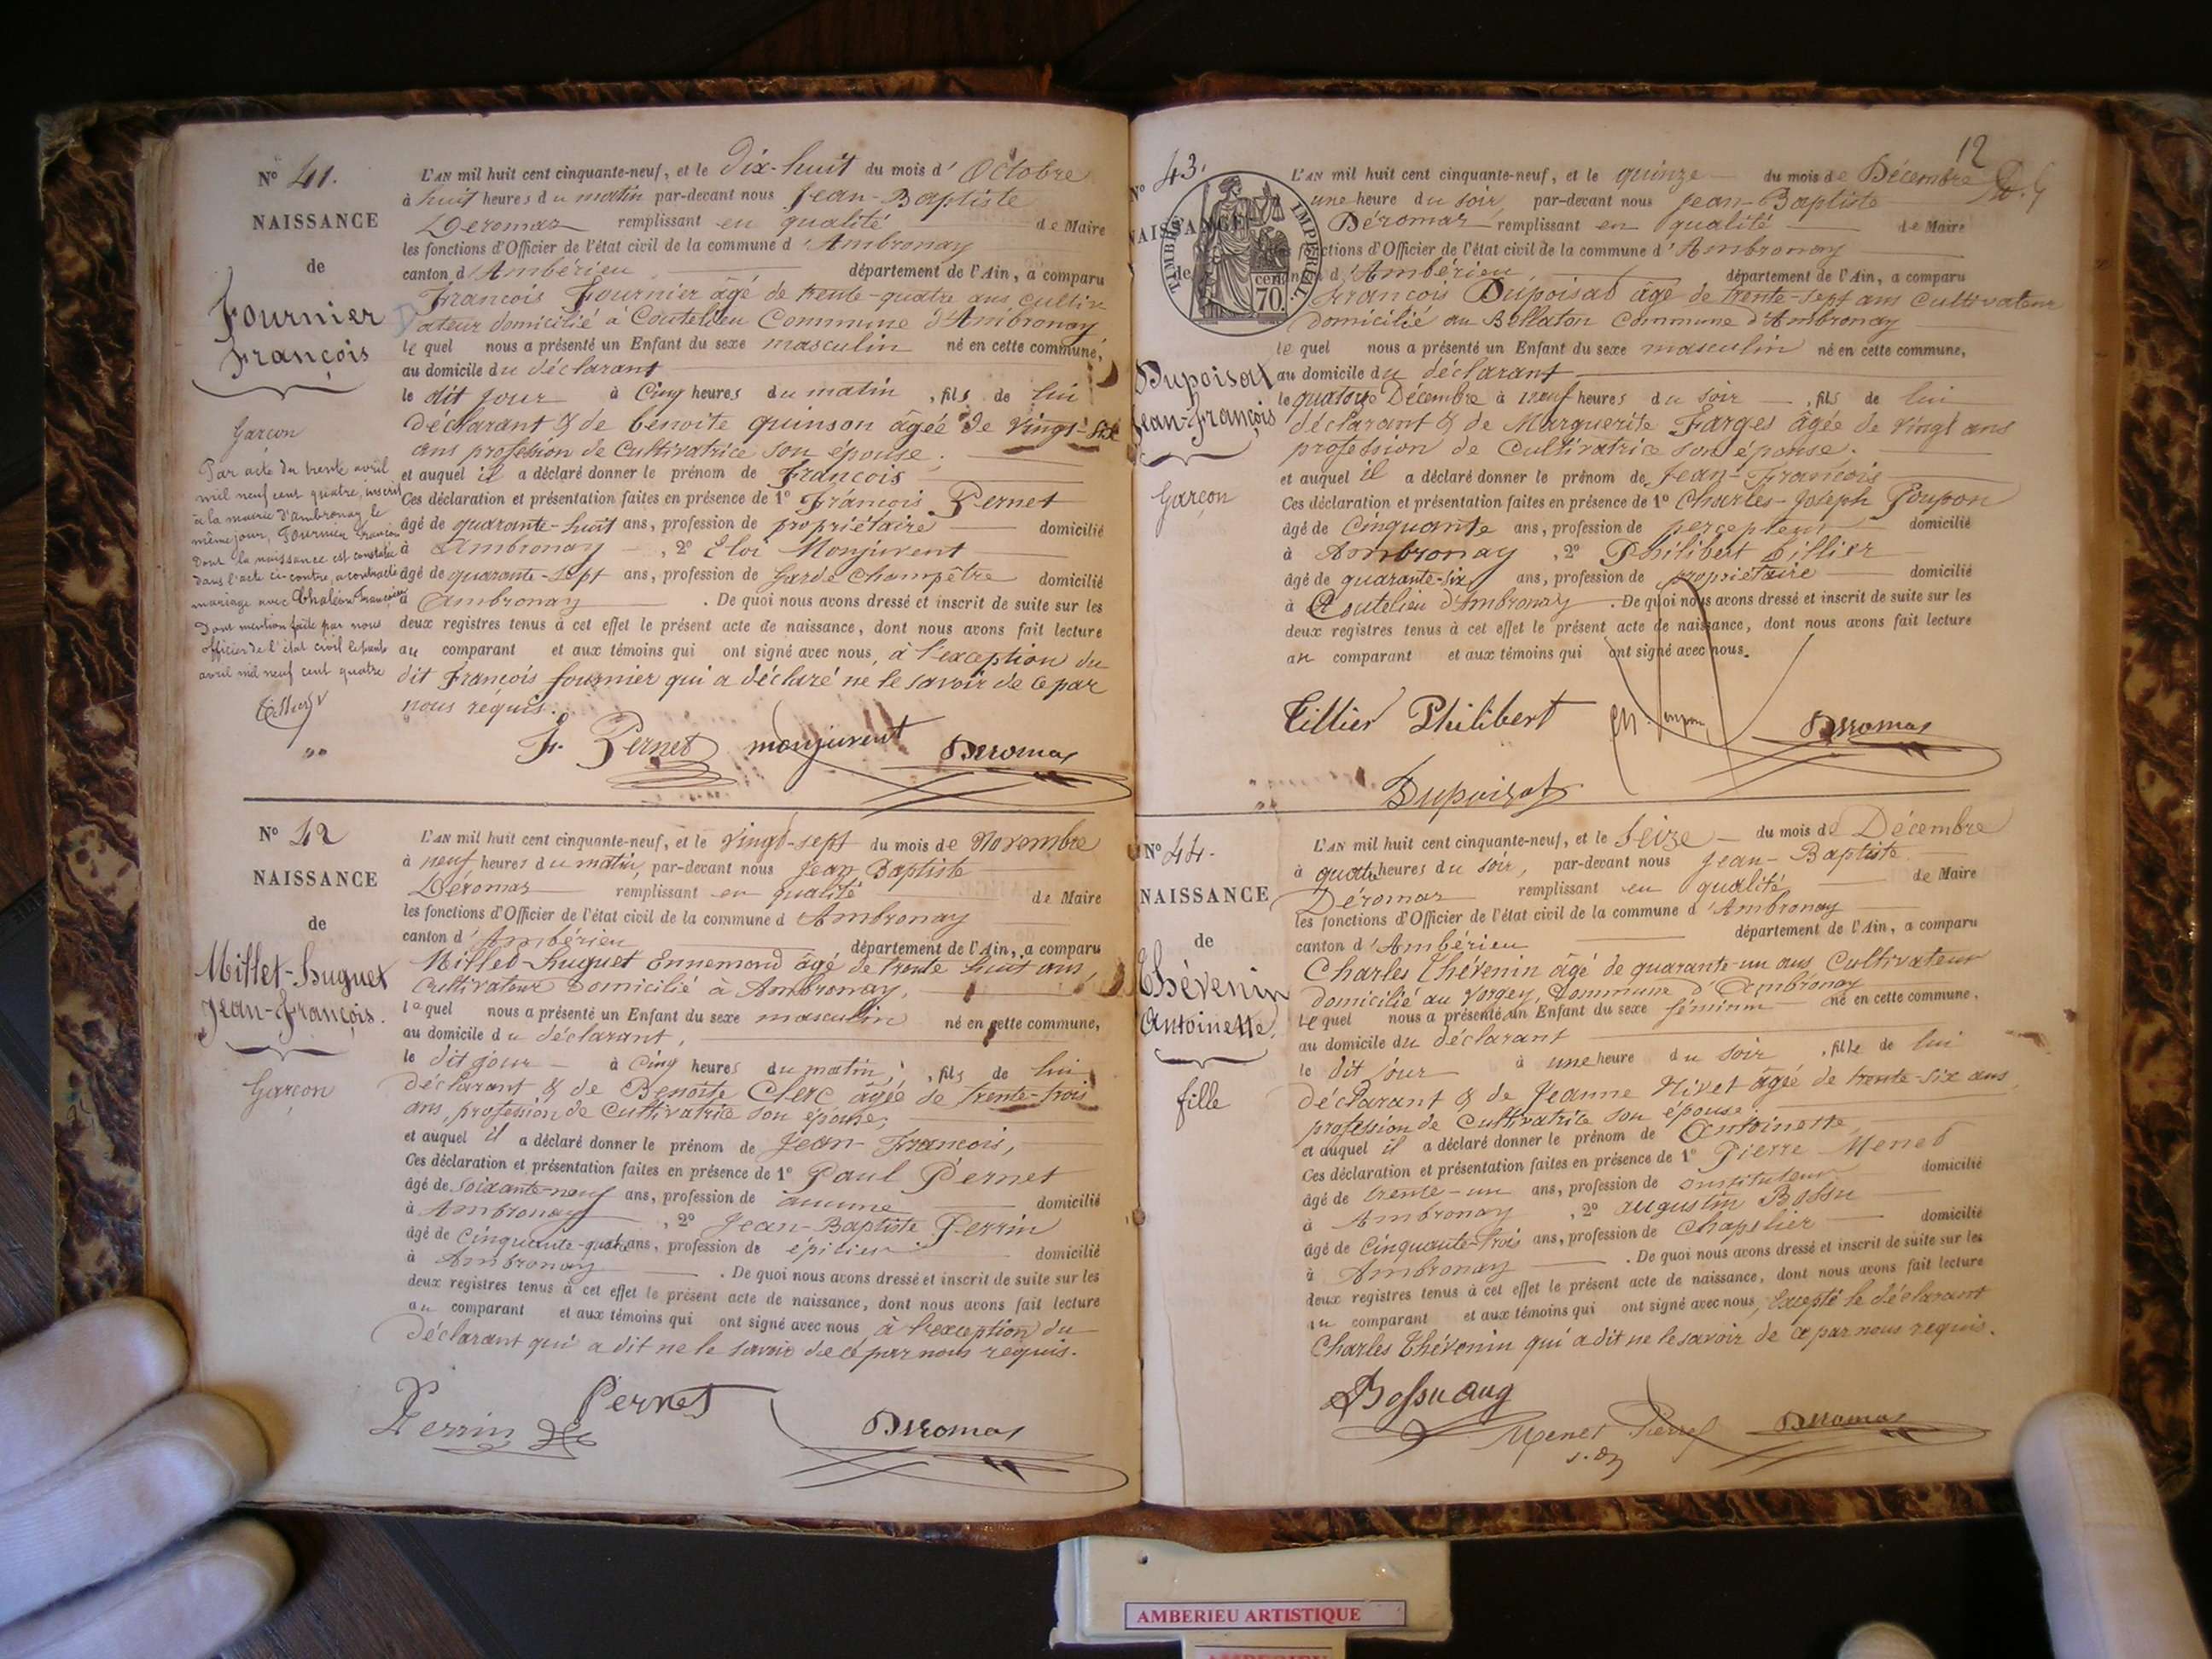 N° 41.
NAISSANCE
de
Fournier
François
Garçon
Par acte du trente avril
mil neuf cent quatre, inscrit
à la mairie d'Ambronay le
même jour, Fournier François
dont la naissance est constatée
dans l'acte ci-contre, a contracté
mariage avec Chaléon Françoise
Dont mention faite par nous
officier de l'état civil le trente
avril mil neuf cent quatre
L'AN mil huit cent cinquante-neuf, et le Dix-huit du mois d'Octobre
à huit heures du matin par-devant nous Jean-Baptiste
Deromas remplissant en qualité de Maire
les fonctions d'Officier de l'état civil de la commune d'Ambronay
canton d'Ambérieu département de l'Ain, a comparu
François Fournier âgé de trente-quatre ans cultiv-
ateur domicilié à Coutelieu Commune d'Ambronay
lequel nous a présenté un Enfant du sexe masculin né en cette commune,
au domicile du déclarant
le dit jour à Cinq heures du matin, fils de lui
déclarant & de benoite quinson âgée de vingt-six
ans profession de Cultivatrice son épouse.
et auquel il a déclaré donner le prénom de François
Ces déclaration et présentation faites en présence de 1° François Pernet
âgé de quarante-huit ans, profession de propriétaire domicilié
à Ambronay, 2° Eloi Monjuvent
âgé de quarante-sept ans, profession de Garde Champêtre domicilié
à Ambronay. De quoi nous avons dressé et inscrit de suite sur les
deux registres tenus à cet effet le présent acte de naissance, dont nous avons fait lecture
au comparant et aux témoins qui ont signé avec nous, à l'exception du
dit François fournier qui a déclaré ne le savoir de ce par
nous requis.
F. Pernet monjuvent Deromas
N° 42
NAISSANCE
de
Millet-Huguet
Jean-François.
Garçon
L'AN mil huit cent cinquante-neuf, et le Vingt-sept du mois de Novembre
à neuf heures du matin, par-devant nous Jean Baptiste
Déromas remplissant en qualité de Maire
les fonctions d'Officier de l'état civil de la commune d Ambronay
canton d'Ambérieu département de l'Ain, a comparu
Millet-Huguet Ennemond âgé de trente huit ans,
Cultivateur domicilié à Ambronay,
lequel nous a présenté un Enfant du sexe masculin né en cette commune,
au domicile du déclarant,
le dit jour à Cinq heures du matin, fils de lui
déclarant & de Benoîte Clerc âgée de trente-trois
ans, profession de Cultivatrice son épouse,
et auquel il a déclaré donner le prénom de Jean-François,
Ces déclaration et présentation faites en présence de 1° Paul Pernet
âgé de soixante-neuf ans, profession de aucune domicilié
à Ambronay, 2° Jean-Baptiste Perrin
âgé de Cinquante-quatre ans, profession de épicier domicilié
à Ambronay. De quoi nous avons dressé et inscrit de suite sur les
deux registres tenus à cet effet le présent acte de naissance, dont nous avons fait lecture
au comparant et aux témoins qui ont signé avec nous à l'exception du
Déclarant qui a dit ne le savoir de ce par nous requis.
Perrin Pernet Deromas
12
N° 43.
NAISSANCE
de
TIMBRE IMPÉRIAL.
cen
70.
Dupoisat
Jean-François
Garçon
L'AN mil huit cent cinquante-neuf, et le quinze du mois de Décembre
à une heure du soir, par-devant nous Jean-Baptiste
Déromas remplissant en qualité de Maire
les fonctions d'Officier de l'état civil de la commune d'Ambronay
canton d'Ambérieu département de l'Ain, a comparu
François Dupoisat âgé de trente-sept ans Cultivateur
domicilié au Bellaton Commune d'Ambronay
lequel nous a présenté un Enfant du sexe masculin né en cette commune,
au domicile du déclarant
le quatorze Décembre à neuf heures du soir, fils de lui
déclarant & de Marguerite Farges âgée de vingt ans
profession de Cultivatrice son épouse.
et auquel il a déclaré donner le prénom de Jean-François
Ces déclaration et présentation faites en présence de 1° Charles-Joseph Poupon
âgé de Cinquante ans, profession de percepteur domicilié
à Ambronay, 2° Philibert Tillier
âgé de quarante-six ans, profession de propriétaire domicilié
à Coutelieu d'Ambronay. De quoi nous avons dressé et inscrit de suite sur les
deux registres tenus à cet effet le présent acte de naissance, dont nous avons fait lecture
au comparant et aux témoins qui ont signé avec nous.
Tillier Philibert Deromas
Dupoizat
N° 44.
NAISSANCE
de
Thévenin
Antoinette.
fille
L'AN mil huit cent cinquante-neuf, et le Seize du mois de Décembre
à quatre heures du soir, par-devant nous Jean-Baptiste
Déromas remplissant en qualité de Maire
les fonctions d'Officier de l'état civil de la commune d'Ambronay
canton d'Ambérieu département de l'Ain, a comparu
Charles Thévenin âgé de quarante-un ans Cultivateur
domicilié au Vorgey, Commune d'Ambronay
Lequel nous a présenté un Enfant du sexe féminin né en cette commune,
au domicile du déclarant
le dit jour à une heure du soir, fille de lui
déclarant & de Jeanne Nivet âgée de trente-six ans
profession de Cultivatrice son épouse.
et auquel il a déclaré donner le prénom de Antoinette
Ces déclaration et présentation faites en présence de 1° Pierre Menet
âgé de trente-un ans, profession de instituteur domicilié
à Ambronay, 2° augustin Bossu
âgé de Cinquante-trois ans, profession de Chapelier domicilié
à Ambronay. De quoi nous avons dressé et inscrit de suite sur les
deux registres tenus à cet effet le présent acte de naissance, dont nous avons fait lecture
au comparant et aux témoins qui ont signé avec nous, Excepté le déclarant
Charles Thévenin qui a dit ne le savoir de ce par nous requis.
Bossu aug
Menet Pierre Deromas
AMBERIEU ARTISTIQUE